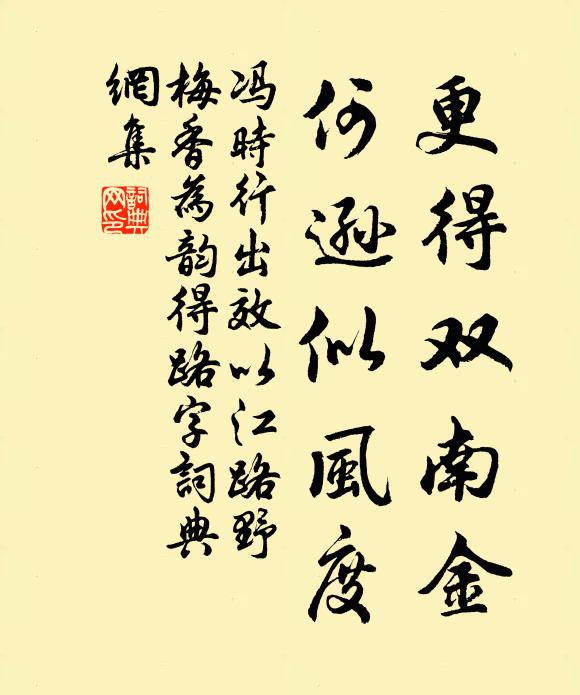 更得双南金
何逊似風度
冯時行出效以江路野
梅香為韵得路字詞典
網集
詞典網印